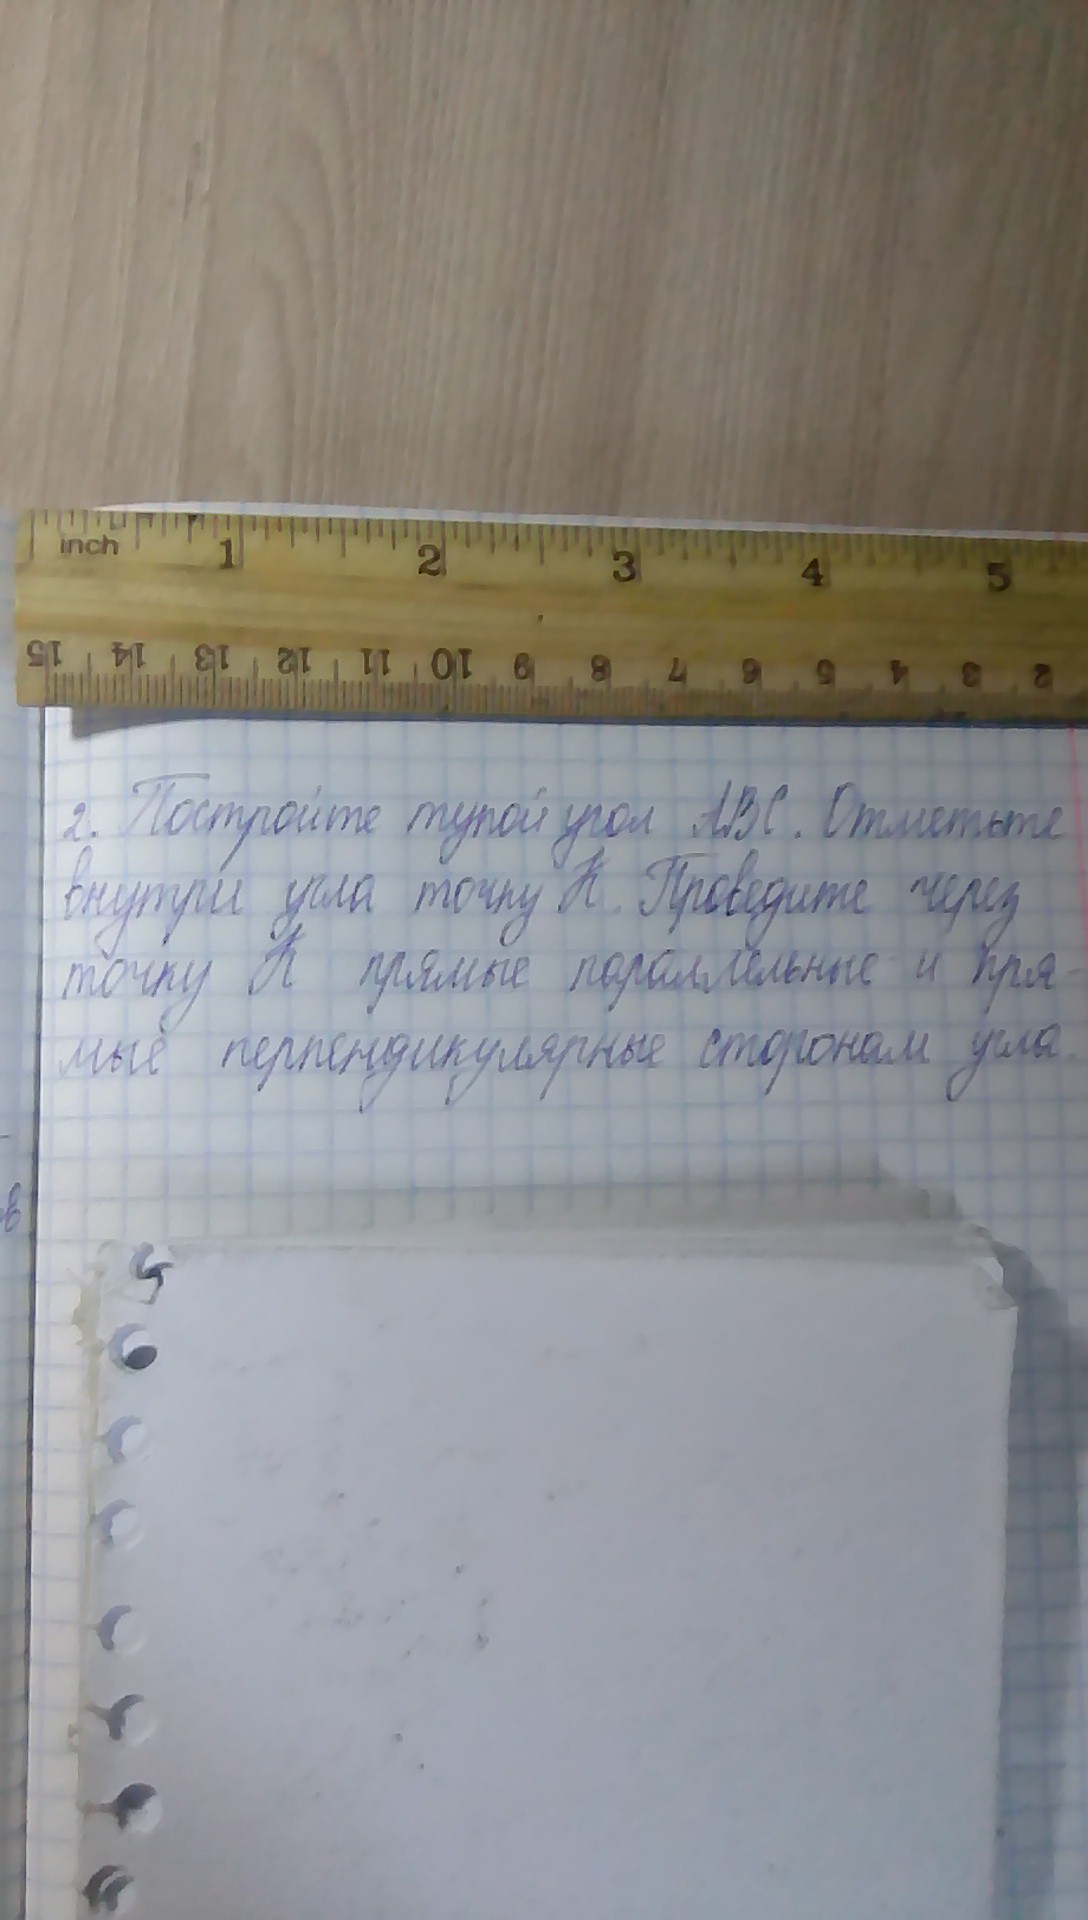 inch 1 2 3 4 5
15 14 13 12 11 10 9 8 7 6 5 4 3 2
2. Постройте тупой угол АВС. Отметьте
внутри угла точку К. Проведите через
точку К прямые параллельные и пря-
мые перпендикулярные сторонам угла.
в